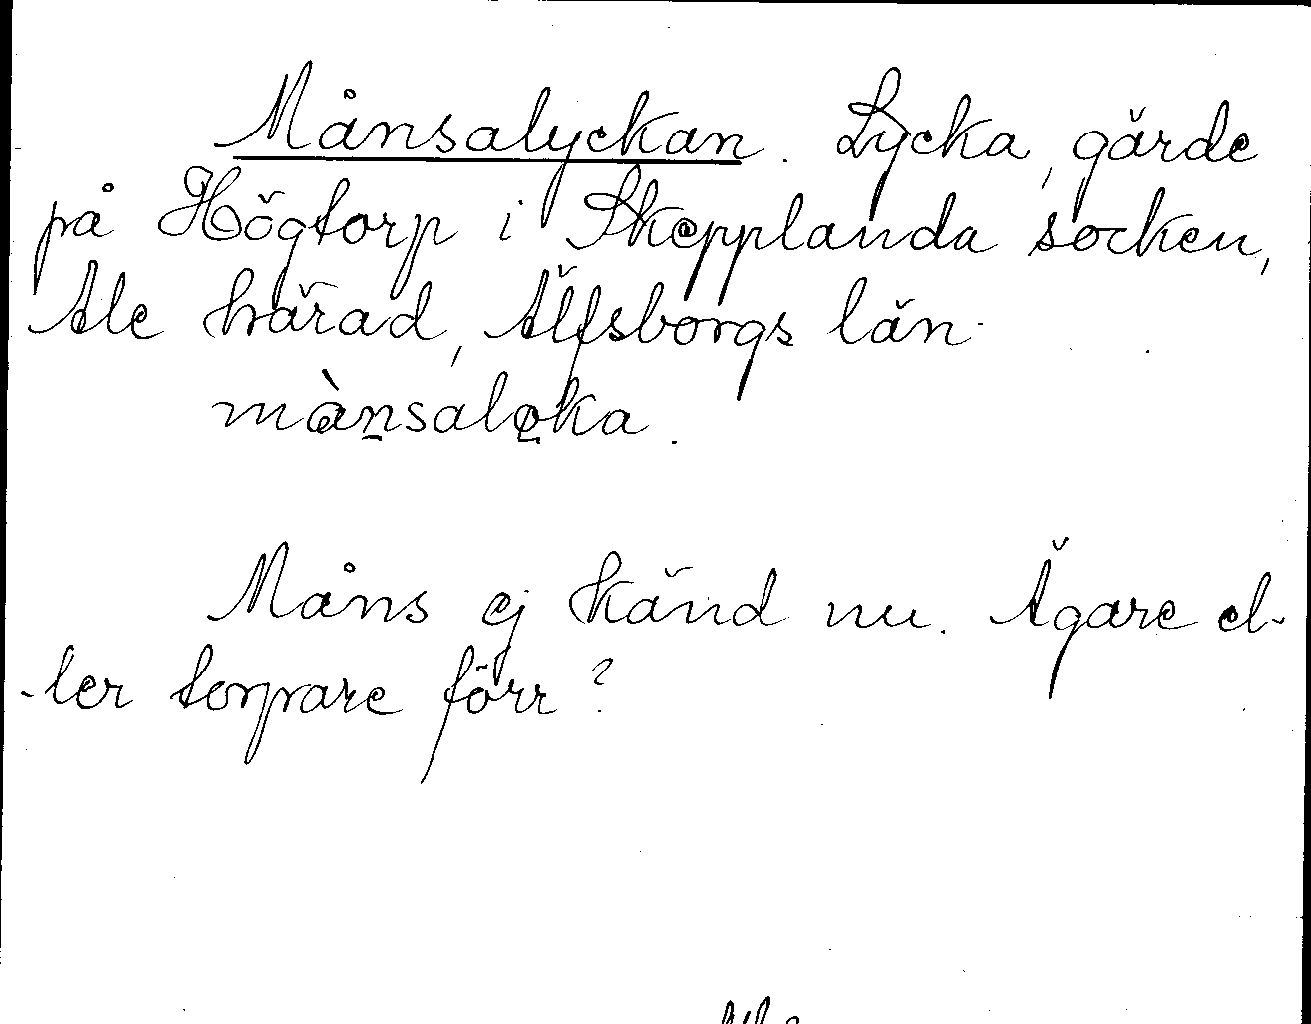 Månsalyckan. Lycka, gärde
på Högtorp i Skepplanda socken,
Ale härad, Älfsborgs län.
màn̲saløka.
Måns ej känd nu. Ägare el-
-ler torpare förr?